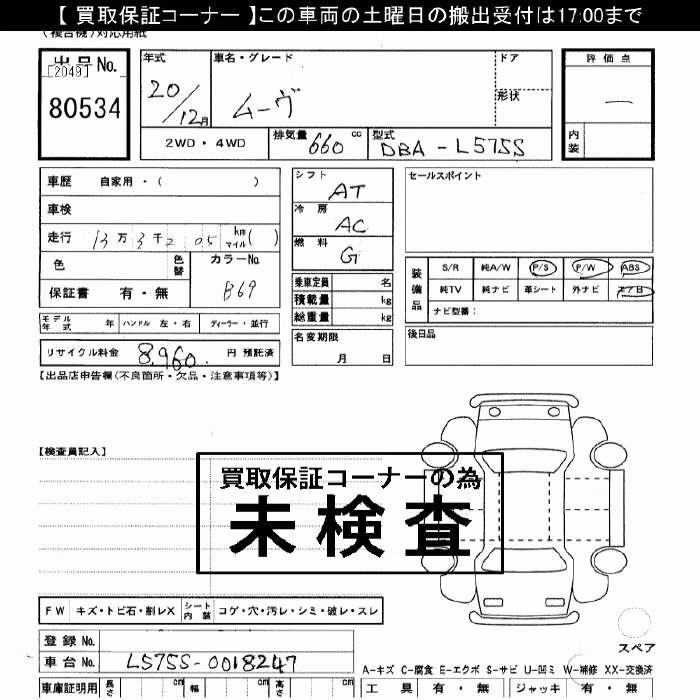 【 買取保証コーナー 】この車両の土曜日の搬出受付は17:00まで
(複合機)対応用紙
出品No.
[2049]
80534
年式
20/12月
車名・グレード
ムーヴ
ドア
形状
評価点
—
内装
2WD・4WD
排気量 660 cc
型式 DBA-L575S
車歴 自家用・( )
車検
走行 13万3千2 05 km マイル( )
色
色替
カラーNo. B69
保証書 有・無
シフト AT
冷房 AC
燃料 G
セールスポイント
乗車定員 名
積載量 kg
総重量 kg
装備品
S/R 純A/W P/S P/W ABS
純TV 純ナビ 革シート 外ナビ エアB
ナビ型番:
モデル年式 年 ハンドル 左・右 ディーラー・並行
名変期限
月 日
後日品
リサイクル料金 8,960 円 預託済
【出品店申告欄(不良箇所・欠品・注意事項等)】
【検査員記入】
買取保証コーナーの為
未検査
FW キズ・トビ石・割レX シート内装 コゲ・穴・汚レ・シミ・破レ・スレ
登録No.
車台No. L575S-0018247
スペア
A-キズ C-腐食 E-エクボ S-サビ U-凹ミ W-補修 XX-交換済
車庫証明用 長さ cm 幅 cm 高さ cm
工具 有・無 ジャッキ 有・無